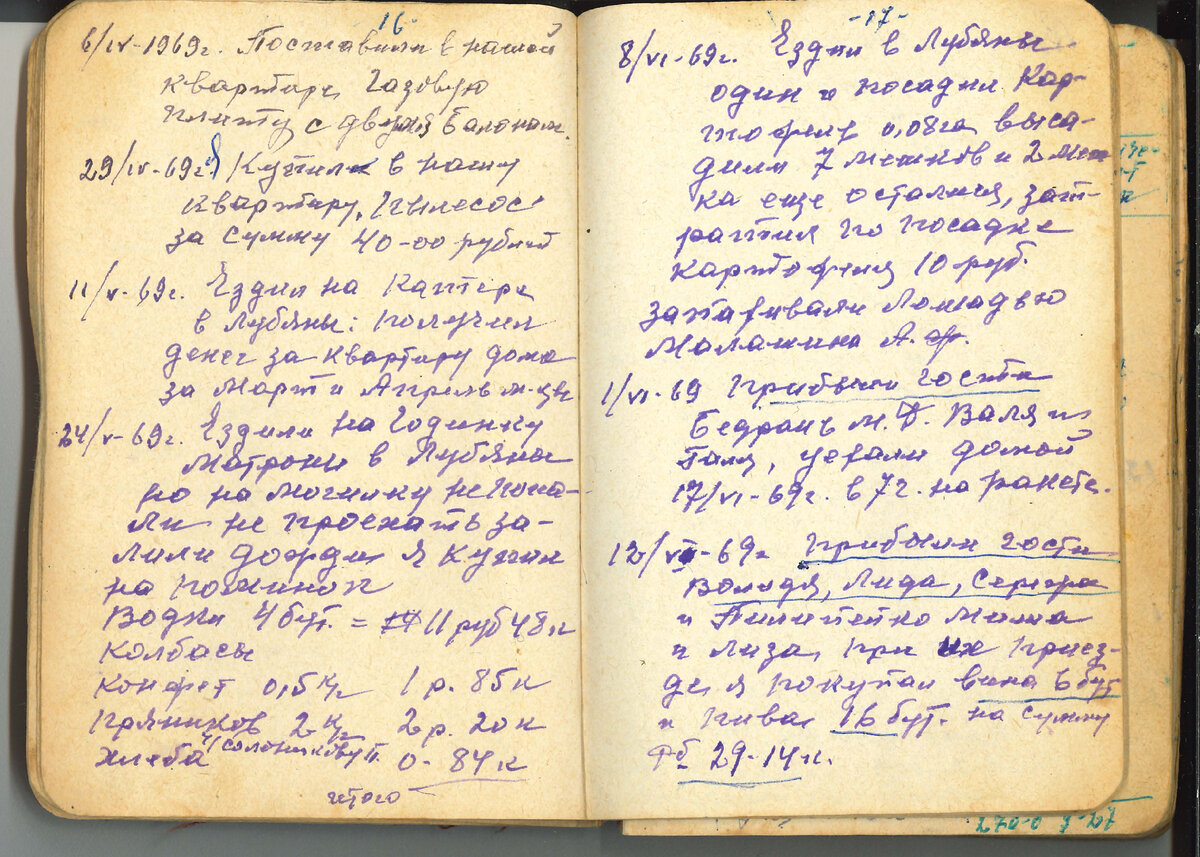 16
6/IV-1969г. Поставили в нашей
квартире Газовую
плиту с двумя балонам.
29/IV-69г. Купили в нашу
квартиру, Пылесос
за сумму 40-00 рублей
11/V-69г. Ездил на Катере
в Лубяны: получил
денег за квартиру дома
за Март и Апрель м-цы
24/V-69г. Ездили на Годинку
Матрони в Лубяны
но на могилку не попа-
ли не проехать за-
лили дожди я купил
на поминок
Водки 4 бут. = 11 руб 48 к
Колбасы
Конфет 0,5 кг 1 р. 85 к
Пряников 2 кг 2 р. 20 к
Хлеба 0-84 к
итого
-17-
8/VI-69г. Ездил в Лубяны
один и посадил Кар-
тофель 0,08 га выса-
дили 7 мешков и 2 меш
ка еще остался, зат-
ратил по посадке
картофеля 10 руб.
запахивали Лошадью
Малашина А. Ф.
1/VI-69 Прибыли гости
Бедрань М. Ф. Валя и
Галя, уехали домой
17/VI-69г. в 7 г. на ракете.
12/VII-69г Прибыли гости
Володя, Лида, Сережа
и Пилипейко Миша
и Лиза, при их приез-
де я покупал вина 6 бут
и пива 16 бут. на сумму
29-14 к.
270-0